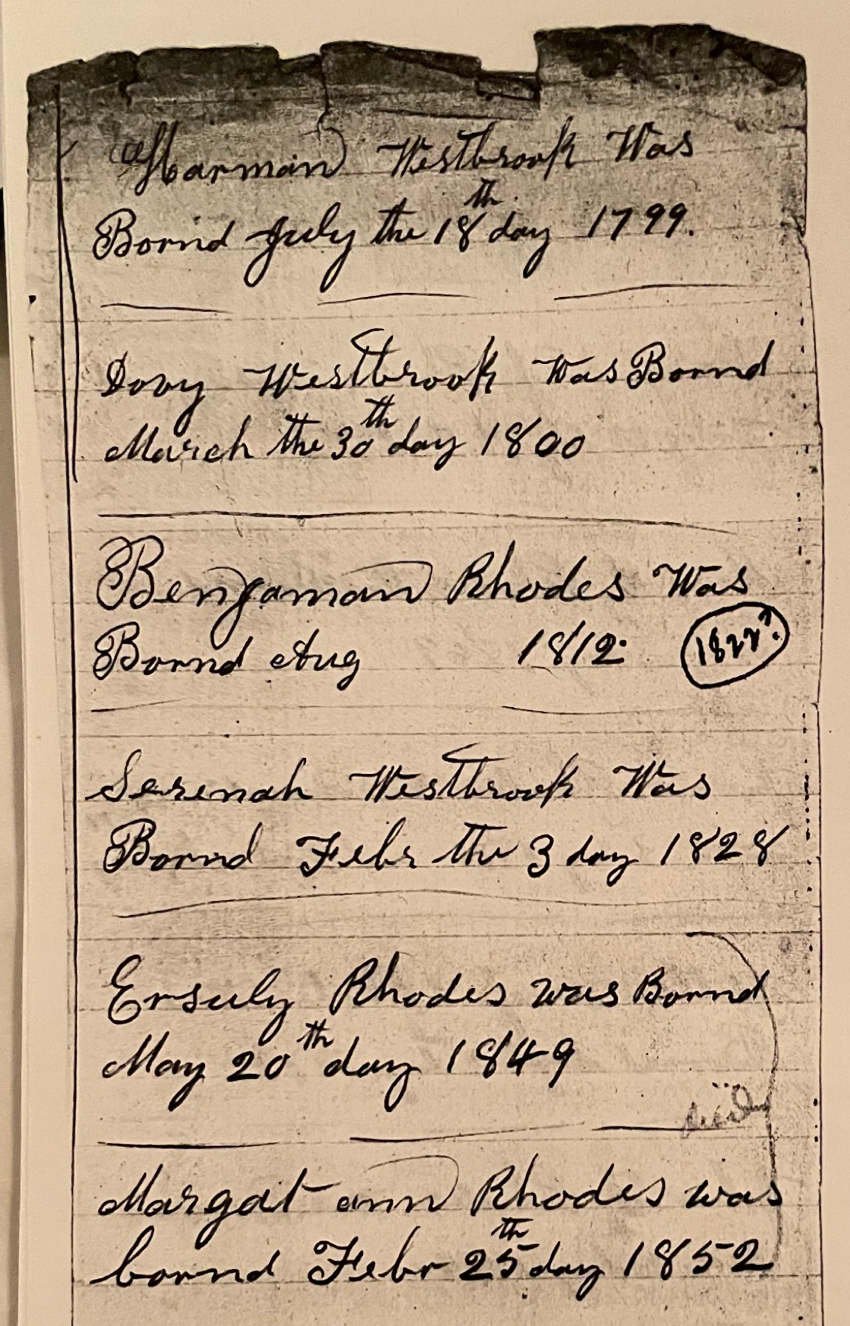 Harman Westbrook Was
Bornd July the 18th day 1799.
Dovy Westbrook Was Bornd
March the 30th day 1800
Benjaman Rhodes Was
Bornd Aug 1812. 1822?
Serenah Westbrook Was
Bornd Febr the 3 day 1828
Ersuly Rhodes was Bornd
May 20th day 1849
Margat ann Rhodes was
bornd Febr 25th day 1852